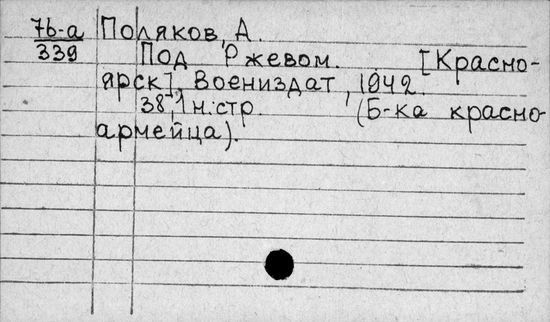 7b-а Поляков, А.
339 Под Ржевом. [Красно-
ярск], Воениздат, 1942.
38, 1 н. стр. (Б-ка красно-
армейца).